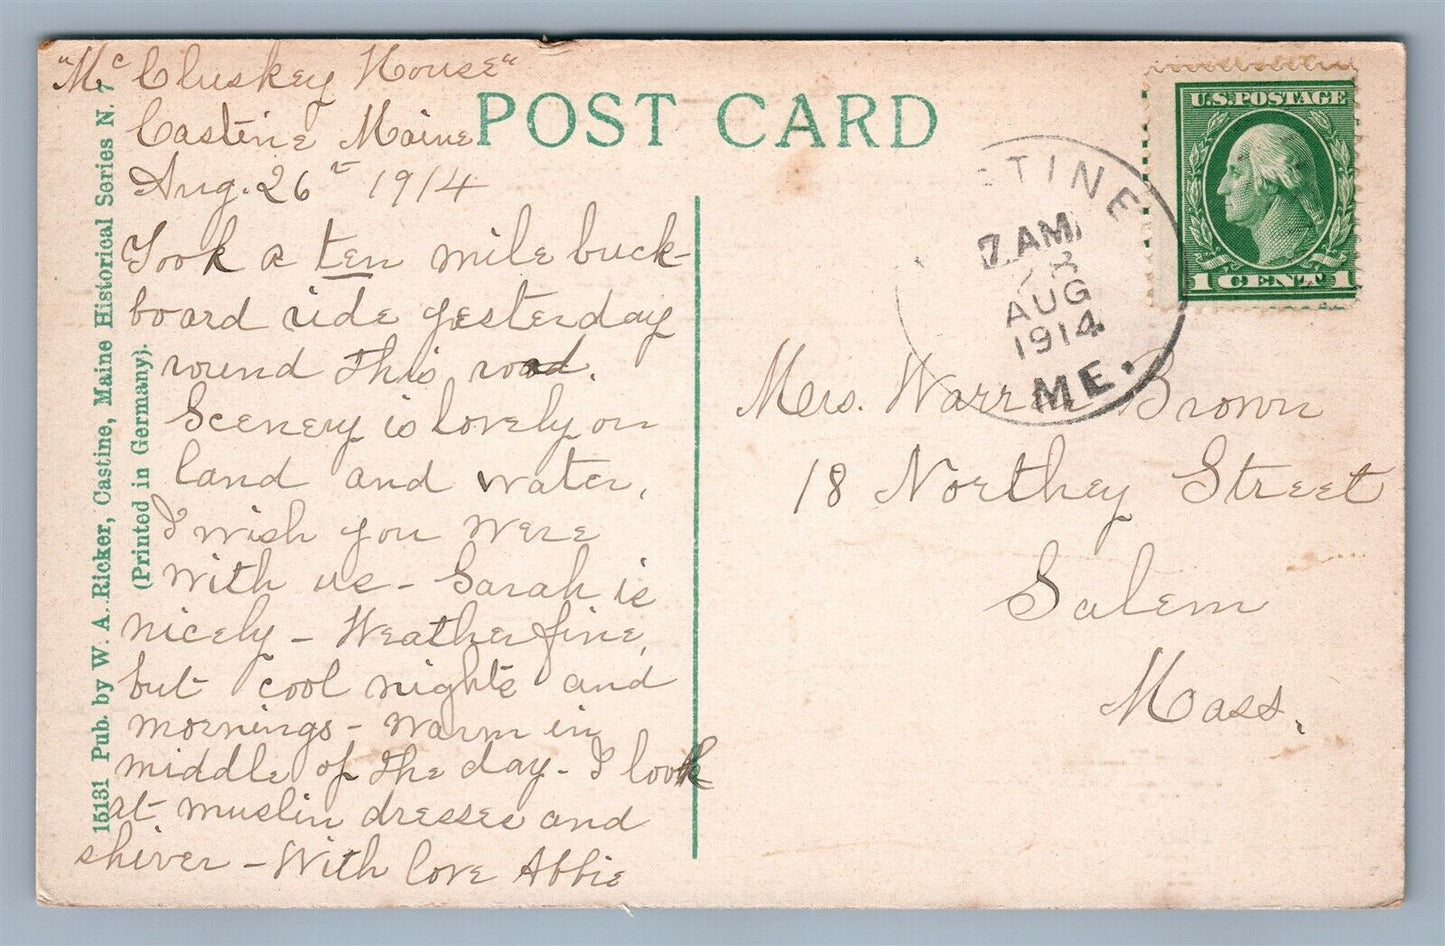 "Mc Cluskey House"
Castine Maine
Aug. 26t 1914
Took a ten mile buck-
board ride yesterday
round this road.
Scenery is lovely on
land and water.
I wish you were
with us - Sarah is
nicely - Weather fine,
but cool nights and
mornings - warm in
middle of the day - I look
at muslin dresses and
shiver - With love Abbie
15131 Pub. by W. A. Ricker, Castine, Maine Historical Series N. 7
(Printed in Germany).
POST CARD
STINE
7 AM
28
AUG
1914
ME.
U.S. POSTAGE
1 CENT 1
Mrs. Warren Brown
18 Northey Street
Salem
Mass.